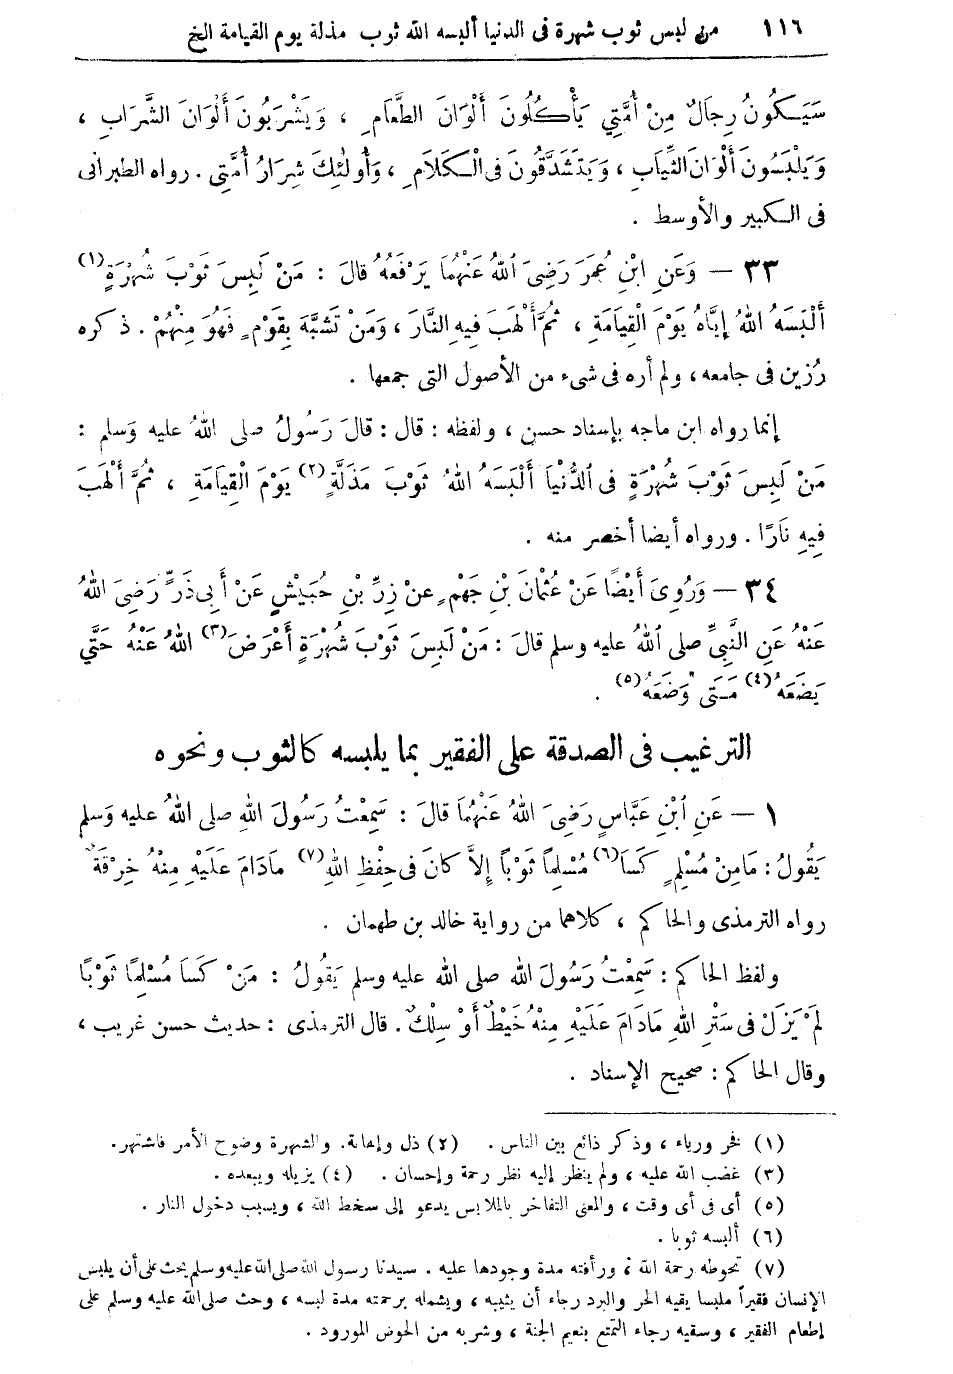 ١١٦ من لبس ثوب شهرة فى الدنيا ألبسه الله ثوب مذلة يوم القيامة الخ
سَيَكُونُ رِجَالٌ مِنْ أُمَّتِي يَأْكُلُونَ أَلْوَانَ الطَّعَامِ ، وَيَشْرَبُونَ أَلْوَانَ الشَّرَابِ ،
وَيَلْبَسُونَ أَلْوَانَ الثِّيَابِ ، وَيَتَشَدَّقُونَ فى الْكَلَامِ ، وَأُولٰئِكَ شِرَارُ أُمَّتِى . رواه الطبرانى
فى الكبير والأوسط .
٣٣ — وَعَنِ ابْنِ عُمَرَ رَضِىَ اللهُ عَنْهُمَا يَرْفَعُهُ قالَ : مَنْ لَبِسَ ثَوْبَ شُهْرَةٍ (١)
أَلْبَسَهُ اللهُ إِيَّاهُ يَوْمَ الْقِيَامَةِ ، ثُمَّ أَلْهَبَ فِيهِ النَّارَ ، وَمَنْ تَشَبَّهَ بِقَوْمٍ فَهُوَ مِنْهُمْ . ذكره
رُزين فى جامعه ، ولم أره فى شىء من الأصول التى جمعها .
إنما رواه ابن ماجه بإسناد حسن ، ولفظه : قال : قالَ رَسُولُ صلى اللهُ عليه وَسلم :
مَنْ لَبِسَ ثَوْبَ شُهْرَةٍ فى الدُّنْيَا أَلْبَسَهُ اللهُ ثَوْبَ مَذَلَّةٍ (٢) يَوْمَ الْقِيَامَةِ ، ثُمَّ أَلْهَبَ
فِيهِ نَارًا . ورواه أيضا أخصر منه .
٣٤ — وَرُوِىَ أَيْضًا عَنْ عُثْمَانَ بْنِ جَهْمٍ عنْ زِرِّ بْنِ حُبَيْشٍ عَنْ أَبِى ذَرٍّ رَضِىَ اللهُ
عَنْهُ عَنِ النَّبِىِّ صلى اللهُ عليه وسلم قالَ : مَنْ لَبِسَ ثَوْبَ شُهْرَةٍ أَعْرَضَ (٣) اللهُ عَنْهُ حَتَّي
يَضَعَهُ (٤) مَتَى وَضَعَهُ (٥) .
الترغيب فى الصدقة على الفقير بما يلبسه كالثوب ونحوه
١ — عَنِ ابْنِ عَبَّاسٍ رَضِىَ اللهُ عَنْهُمَا قالَ : سَمِعْتُ رَسُولَ اللهِ صلى اللهُ عليه وَسلم
يَقُولُ : مَامِنْ مُسْلِمٍ كَسَا (٦) مُسْلِماً ثَوْباً إِلاَّ كانَ فى حِفْظِ اللهِ (٧) مَادَامَ عَلَيْهِ مِنْهُ خِرْقَةٌ
رواه الترمذى والحاكم ، كلاهما من رواية خالد بن طهمان .
ولفظ الحاكم : سَمِعْتُ رَسُولَ الله صلى الله عليه وسلم يَقُولُ : مَنْ كَسَا مُسْلِمًا ثَوْبًا
لَمْ يَزَلْ فى سَتْرِ اللهِ مَادَامَ عَلَيْهِ مِنْهُ خَيْطٌ أَوْ سِلْكٌ . قال الترمذى : حديث حسن غريب ،
وقال الحاكم : صحيح الإسناد .
(١) فخر ورياء ، وذكر ذائع بين الناس . (٢) ذل وإهانة. والشهرة وضوح الأمر فاشتهر.
(٣) غضب الله عليه ، ولم ينظر إليه نظر رحمة وإحسان . (٤) يزيله ويبعده .
(٥) أى فى أى وقت ، والمعنى التفاخر بالملابس يدعو إلى سخط الله ، ويسبب دخول النار .
(٦) ألبسه ثوبا .
(٧) تحوطه رحمة الله ، ورأفته مدة وجودها عليه . سيدنا رسول الله صلى الله عليه وسلم يحث على أن يلبس
الإنسان فقيراً ملبسا يقيه الحر والبرد رجاء أن يثيبه ، ويشمله برحمته مدة لبسه ، وحث صلى الله عليه وسلم على
إطعام الفقير ، وسقيه رجاء التمتع بنعيم الجنة ، وشربه من الحوض المورود .